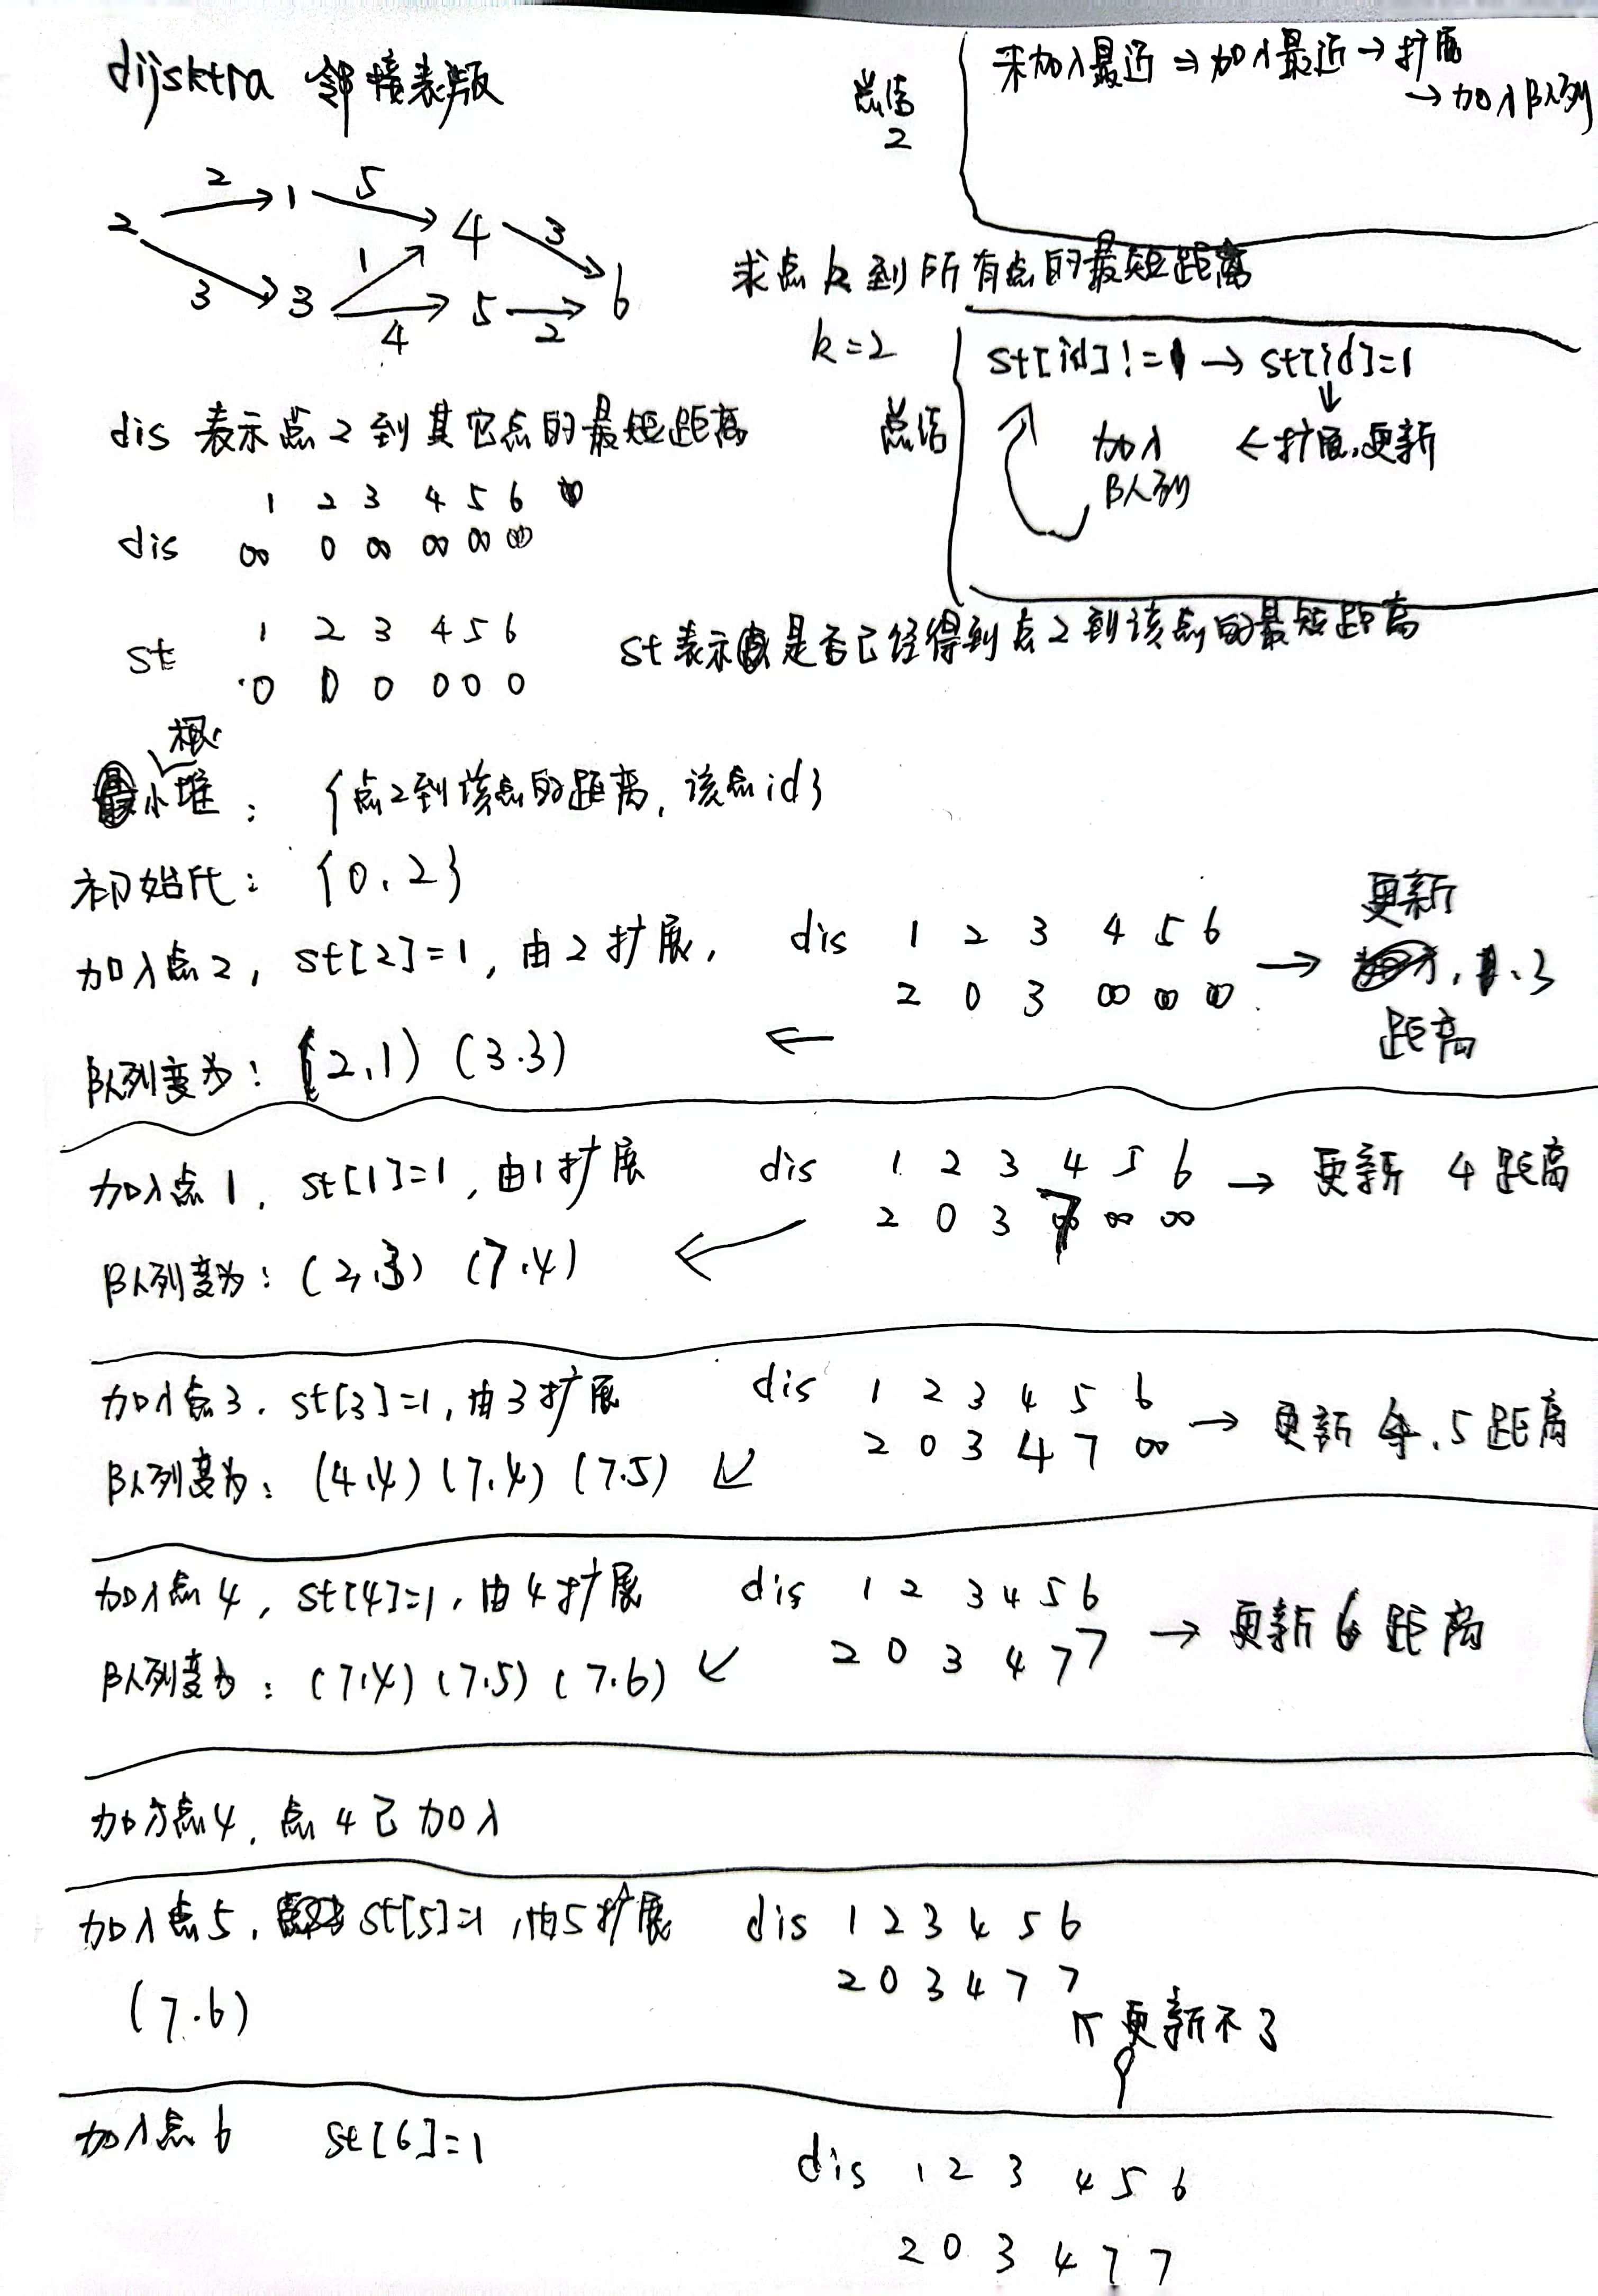 dijsktra 邻接表版
总结
2
未加入最近 ⇒ 加入最近 → 扩展
→ 加入队列
2 1 5
2 4 3
1
3 3 5 6
4 2
求点k到所有点的最短距离
k=2
总结
st[id]!=1 → st[id]=1
↓
加入 ← 扩展,更新
队列
dis 表示点2到其它点的最短距离
1 2 3 4 5 6
dis ∞ 0 ∞ ∞ ∞ ∞
1 2 3 4 5 6
st 0 0 0 0 0 0
st表示是否已经得到点2到该点的最短距离
小根堆: {点2到该点的距离, 该点id}
初始化: {0, 2}
加入点2, st[2]=1, 由2扩展, dis 1 2 3 4 5 6
2 0 3 ∞ ∞ ∞ → 更新
1、3
距离
队列变为: (2,1) (3.3) ←
加入点1, st[1]=1, 由1扩展 dis 1 2 3 4 5 6 → 更新 4距离
2 0 3 7 ∞ ∞
队列变为: (2,3) (7.4) ←
加入点3. st[3]=1, 由3扩展 dis 1 2 3 4 5 6
2 0 3 4 7 ∞ → 更新4、5距离
队列变为: (4.4) (7.4) (7.5) ↙
加入点4, st[4]=1, 由4扩展 dis 1 2 3 4 5 6
2 0 3 4 7 7 → 更新6距离
队列变为: (7.4) (7.5) (7.6) ↙
加入点4, 点4已加入
加入点5, st[5]=1, 由5扩展 dis 1 2 3 4 5 6
(7.6) 2 0 3 4 7 7
更新不了
加入点6 st[6]=1
dis 1 2 3 4 5 6
2 0 3 4 7 7